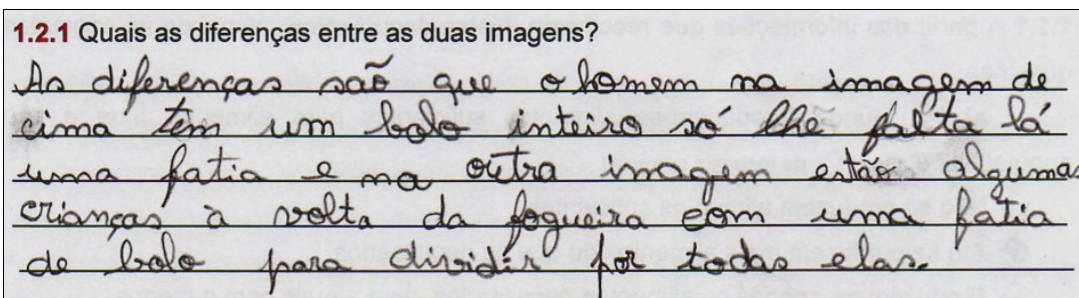 1.2.1 Quais as diferenças entre as duas imagens?
As diferenças saõ que o homem na imagem de
cima tem um bolo inteiro só lhe falta lá
uma fatia e na outra imagem estão algumas
crianças à volta da fogueira com uma fatia
de bolo para dividir por todas elas.